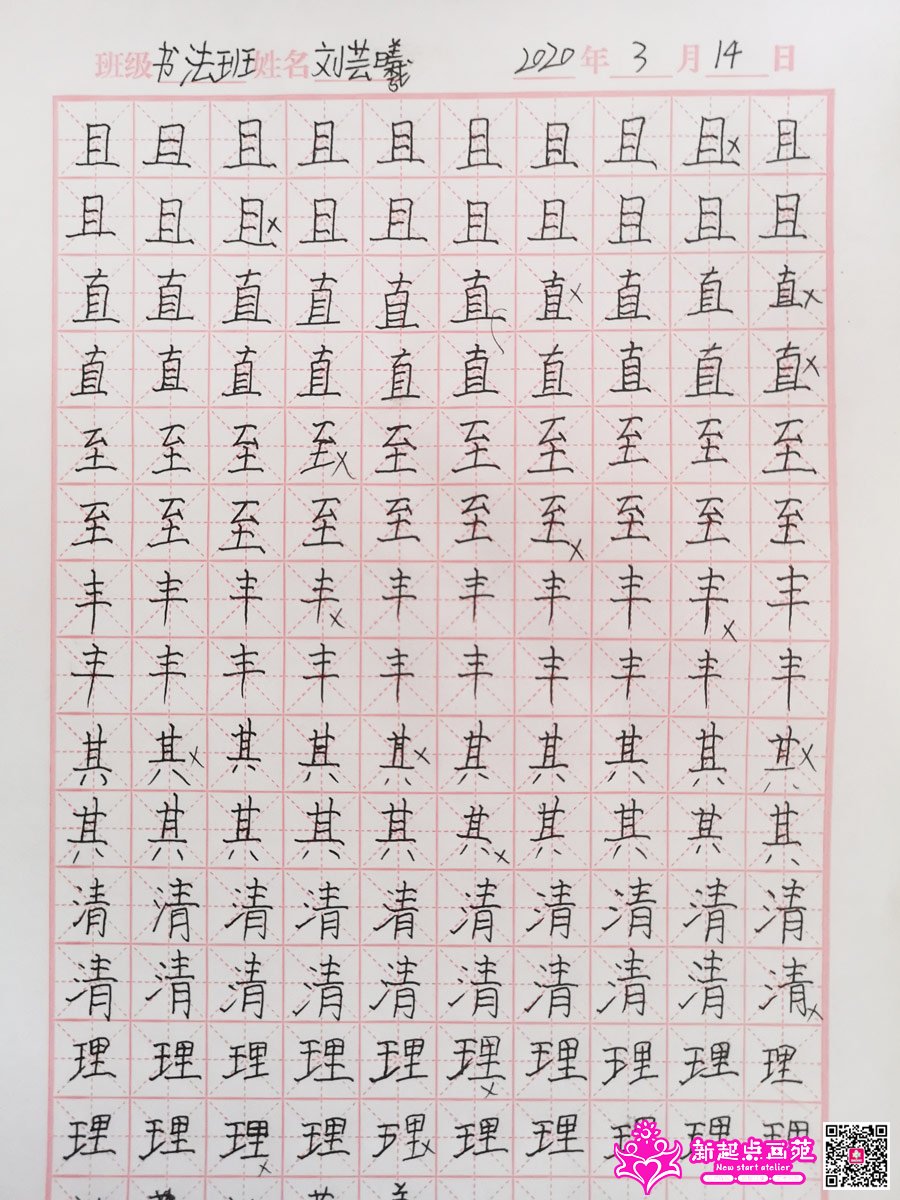 班级书法班姓名刘芸曦 2020年3月14日
且且且且且且且且且×且
且且且×且且且且且且且
直直直直直直直×直直直×
直直直直直直直直直直×
至至至至×至至至至至至
至至至至至至至×至至至
丰丰丰丰×丰丰丰丰丰×丰
丰丰丰丰丰丰丰丰丰丰
其其×其其其×其其其其其×
其其其其其其×其其其其
清清清清清清清清清清
清清清清清清清清清清×
理理理理理理×理理理理
理理理×理理×理理理理理
新起点画苑
New start atelier